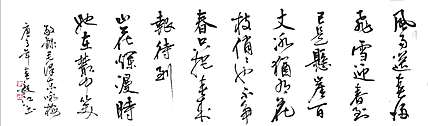 風雨送春歸
飛雪迎春到
已是懸崖百
丈冰猶有花
枝俏俏也不爭
春只把春來
報待到
山花爛漫時
她在叢中笑
毛澤東詠梅
庚子年